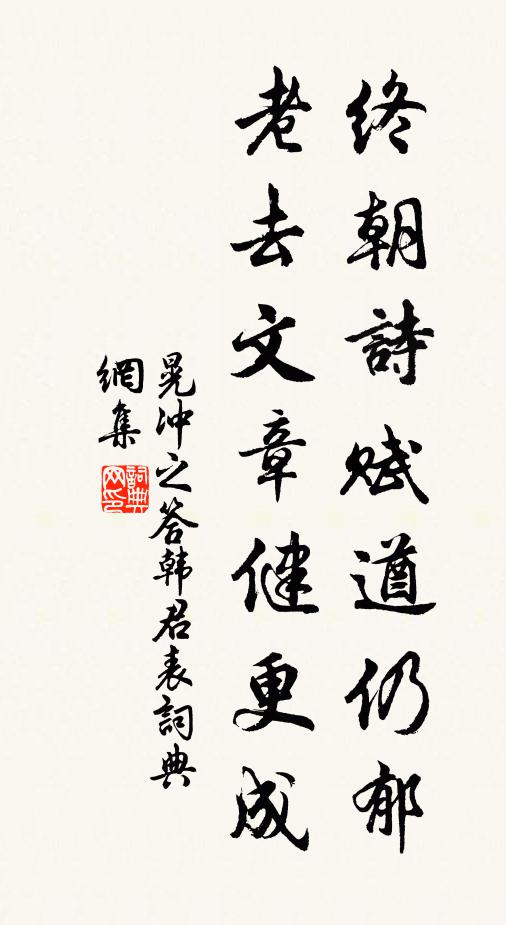 終朝詩賦遒仍郁
老去文章健更成
晁冲之答韩君表詞典
網集
詞典
网印